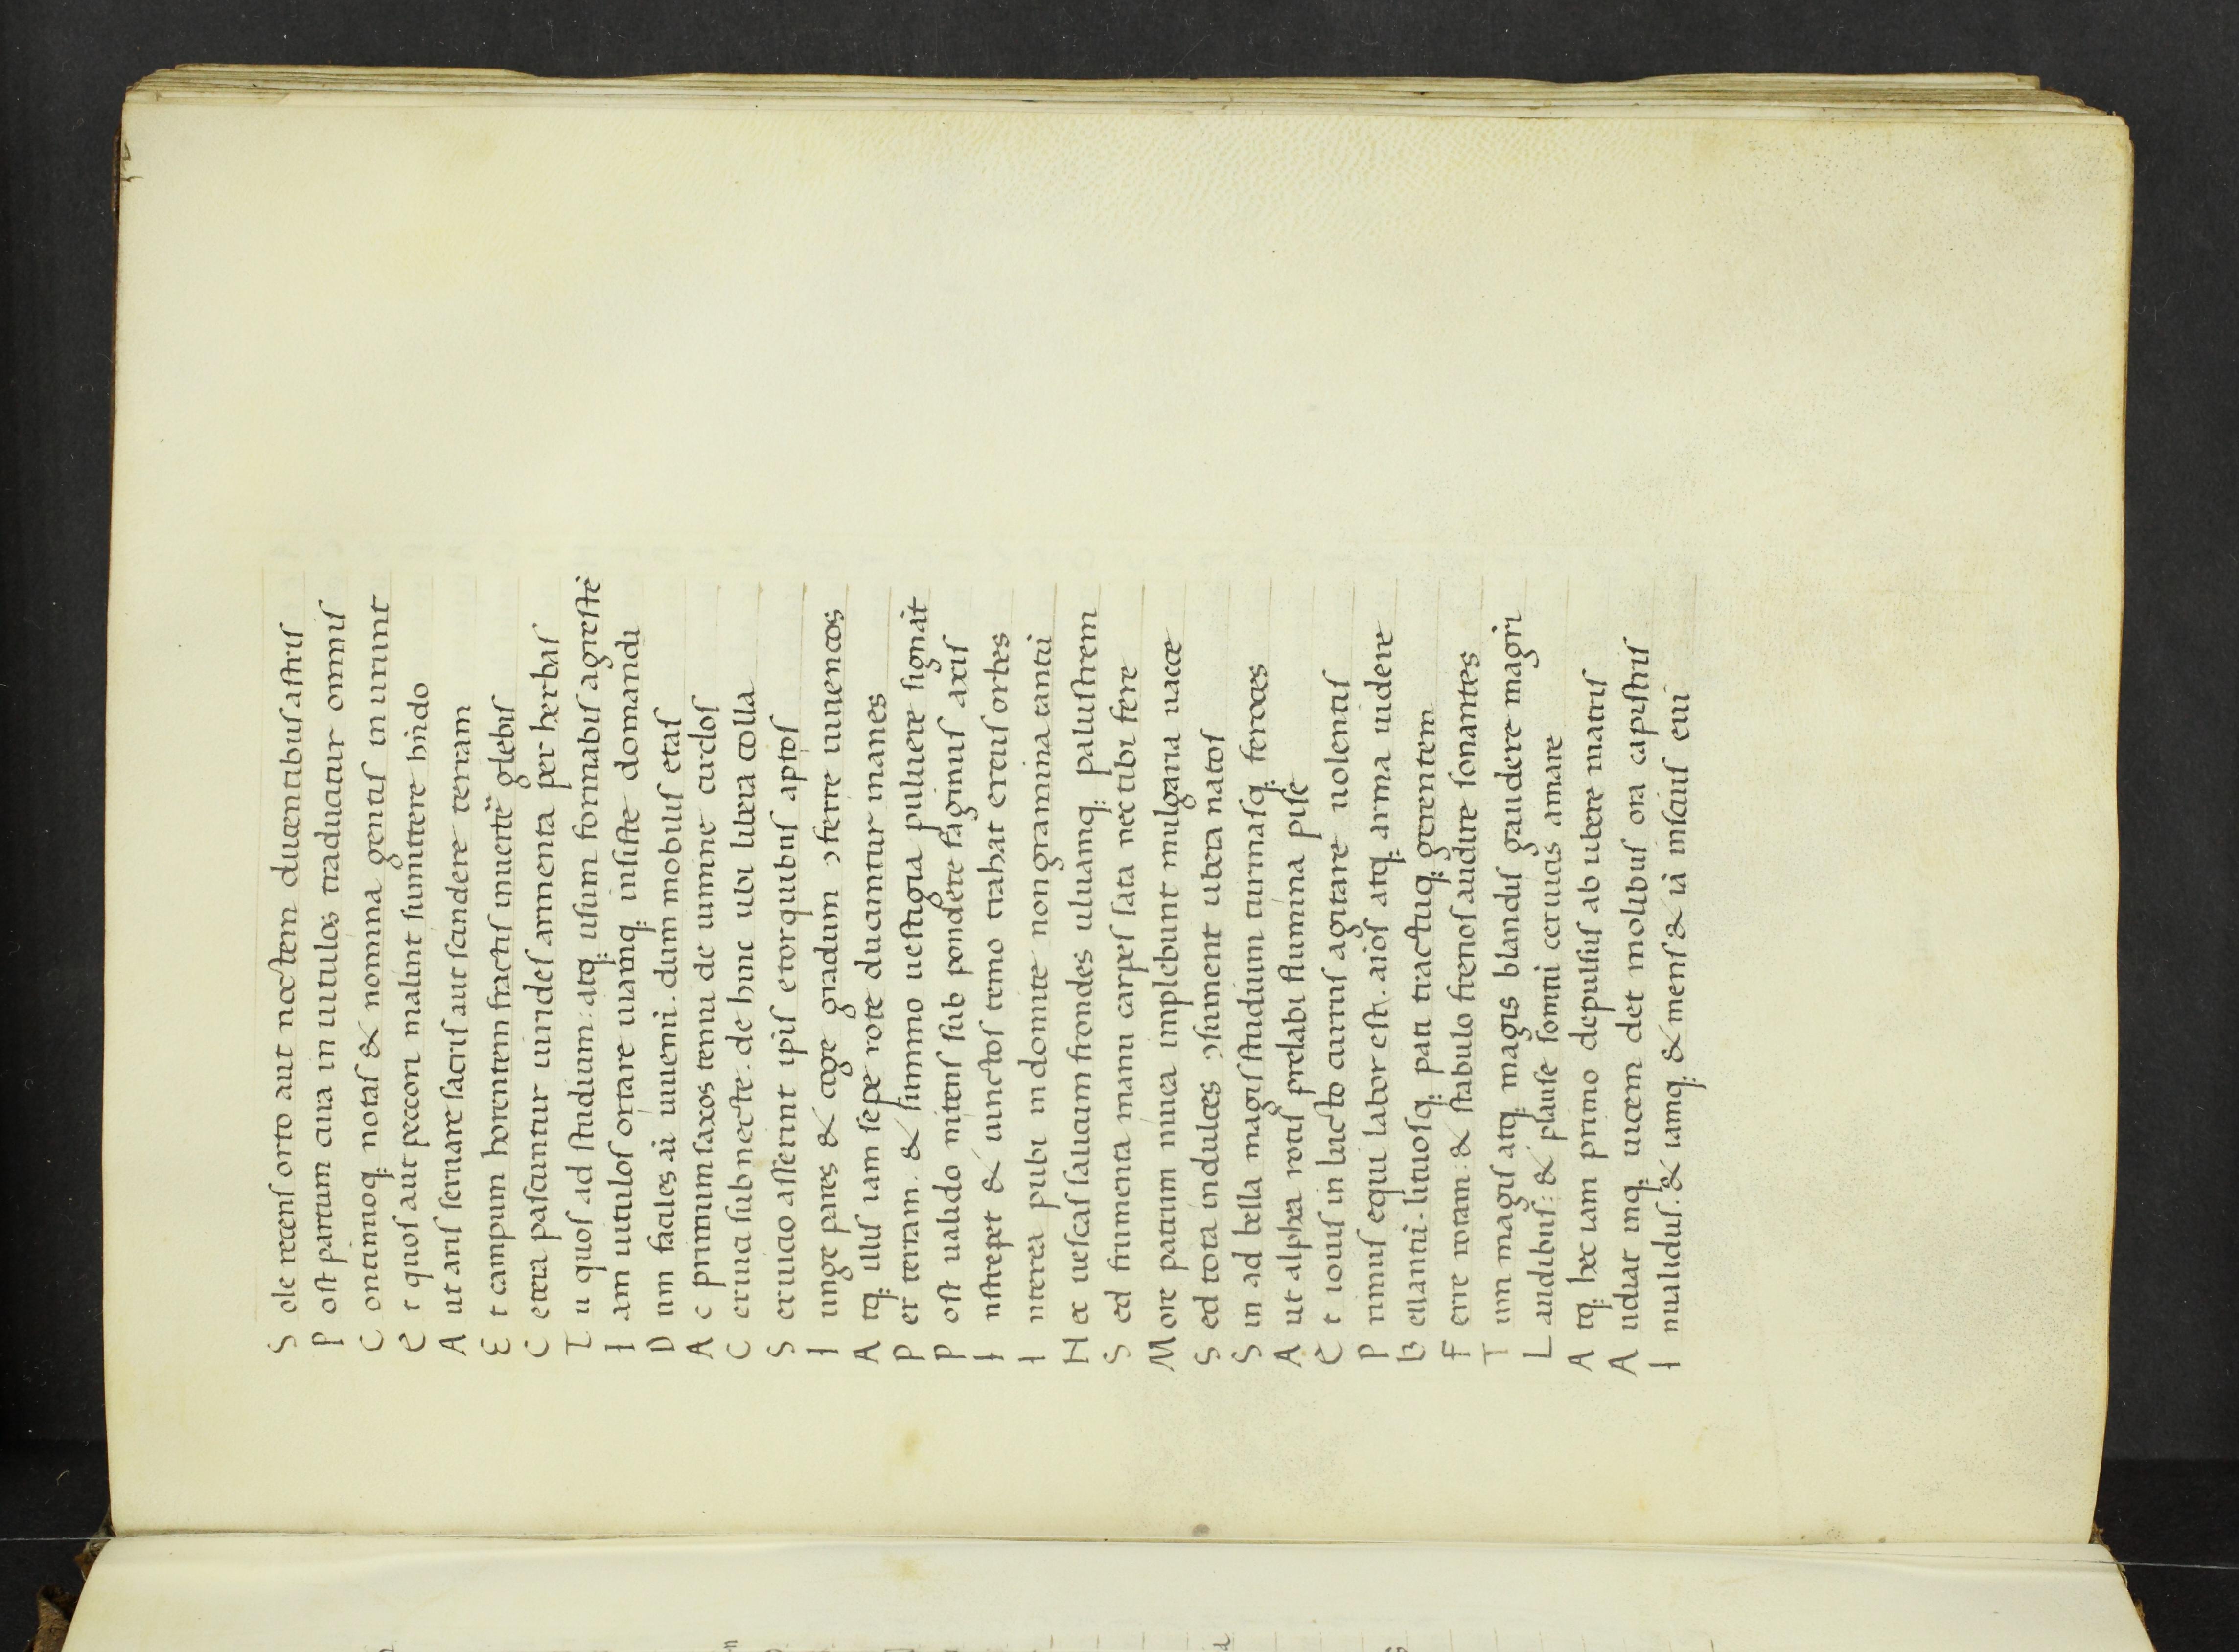 S ole recenſ orto aut noctem ducentibuſ aſtriſ
P oſt partum cura in uitulos traducitur omniſ
C ontinuoq; notaſ & nomina gentiſ in urunt
E t quoſ aut pecori malint ſumittere hñdo
A ut ariſ ſeruare ſacriſ aut ſcindere terram
E t campum horentem fractiſ inuertē glebiſ
C etera paſcuntur uirideſ armenta per herbaſ
T u quoſ ad ſtudium: atq; uſum formabiſ agreſtē
I am uituloſ ortare uiamq; inſiſte domandi
D um faciles aī iuueni. dum mobiliſ etaſ
A c primum laxos tenui de uimine circloſ
C eruici ſubnecte. de hinc ubi libera colla
S eruicio aſſerint ipiſ etorquibuſ aptoſ
I unge pares & coge gradum ↄferre iuuencos
A tq; illiſ iam ſepe rote ducuntur inanes
P er terram. & ſummo ueſtigia puluere ſignāt
P oſt ualido nitenſ ſub pondere faginuſ axiſ
I nſtrepet & iunctoſ temo trahat ereuſ orbes
I nterea pubi indomite non gramina tantū
H ec ueſcaſ ſalicum frondes uluamq; paluſtrem
S ed frumenta manu carpeſ ſata nec tibi fere
M ore patrum niuea implebunt mulgaria uacce
S ed tota in dulces ↄſument ubera natoſ
S in ad bella magiſ ſtudium turmaſq; feroces
A ut alphea rotiſ prelabi flumina piſe
E t iouiſ in lucto curruſ agitare uolentiſ
P rimuſ equi labor eſt. aīoſ atq; arma uidere
B ellantū. lituoſq; pati tractuq; gerentem
F erre rotam: & ſtabulo frenoſ audire ſonantes
T um magiſ atq; magis blandiſ gaudere magrī
L audibuſ: & plauſe ſomni ceruicis amare
A tq; hec iam primo depulſuſ ab ubere matriſ
A udiat inq; uicem det molibuſ ora capiſtriſ
I nualiduſ. & iamq; & menſ & iā inſciuſ eui